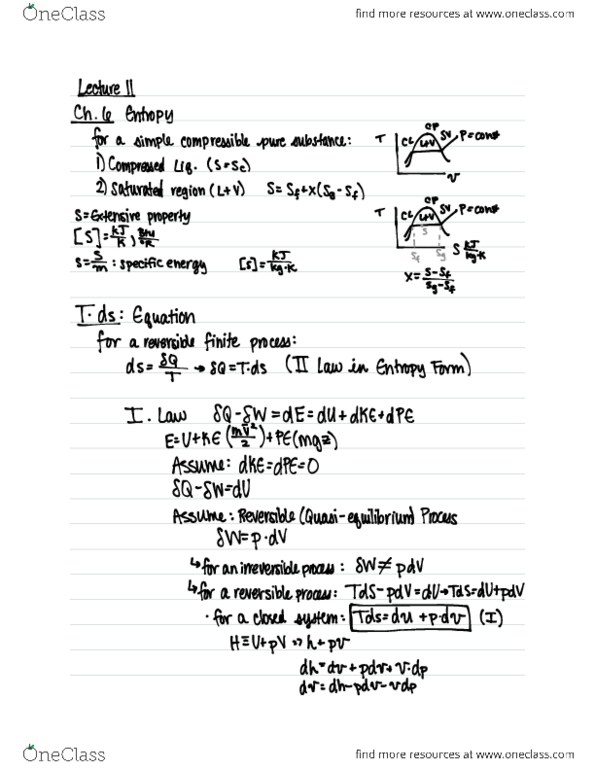 OneClass
find more resources at www.oneclass.com
Lecture 11
Ch. 6 Entropy
for a simple compressible pure substance:
1) Compressed Liq. (S=Sc)
2) Saturated region (L+V) S=Sf+x(Sg-Sf)
T CL CP L+V SV P=const
v
S=Extensive property
[S]=kJ/K, Btu/°R
s=S/m : specific energy [s]=kJ/kg·K
T CL CP L+V SV P=const
s
Sf Sg S kJ/kg·K
x=S-Sf/Sg-Sf
T·ds: Equation
for a reversible finite process:
ds=δQ/T → δQ=T·ds (II Law in Entropy Form)
I. Law δQ-δW=dE=dU+dKE+dPE
E=U+KE(mV²/2)+PE(mgz)
Assume: dKE=dPE=0
δQ-δW=dU
Assume: Reversible (Quasi-equilibrium) Process
δW=p·dV
↳for an irreversible process: δW≠pdV
↳for a reversible process: TdS-pdV=dU→TdS=dU+pdV
· for a closed system: Tds=du+p·dv (I)
H≡U+pV ⇒ h+pv
dh=dv+pdv+v·dp
dv=dh-pdv-vdp
OneClass
find more resources at www.oneclass.com